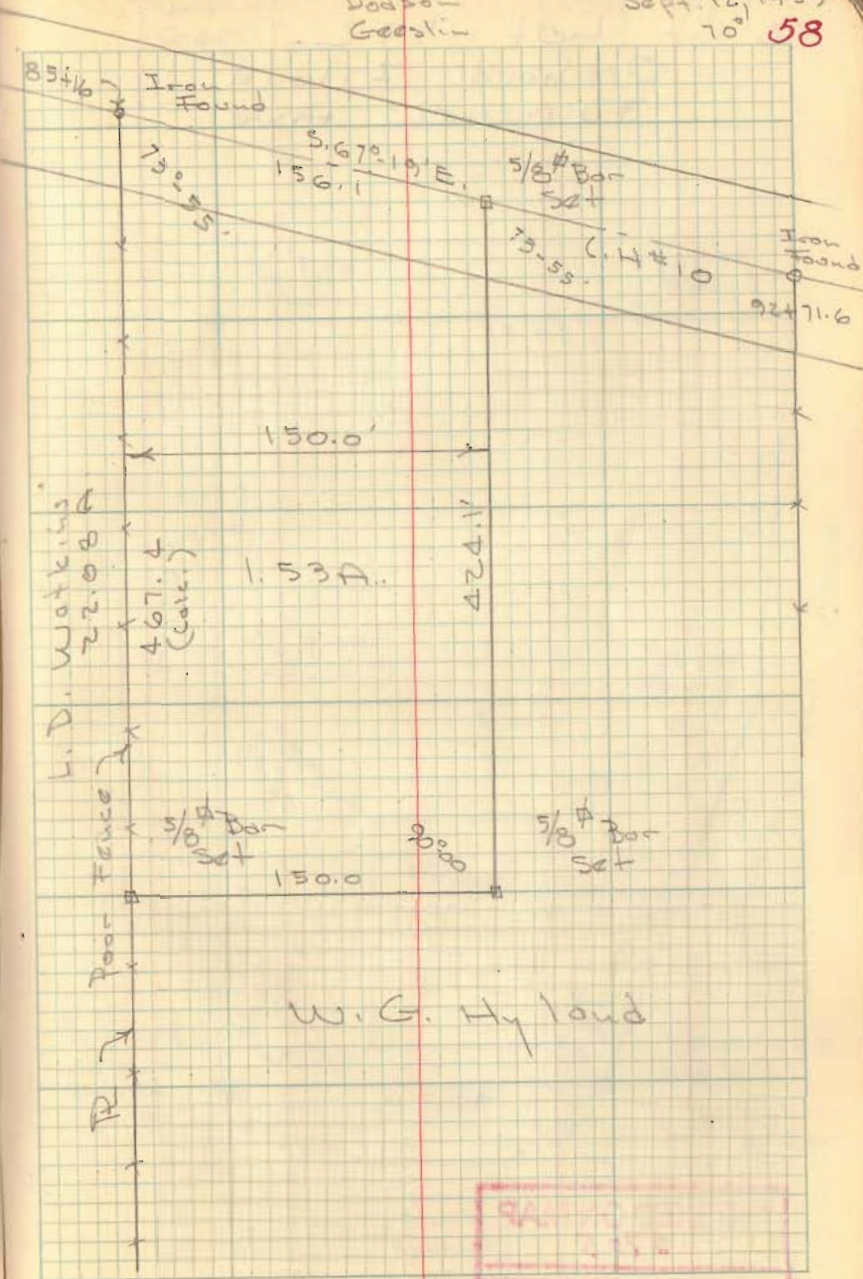 Dodson
Geeslin
Sept. 12,
70°
58
85+16
Iron
Found
S.67°-19'E.
156.1
5/8 ⌀ Bar
Set
73-55.
73-55.
C.H #10
Iron
Found
92+71.6
150.0'
L.D. Watkins
22.08A
467.4
(Calc.)
1.53A.
424.1'
Poor Fence
5/8 ⌀ Bar
Set
5/8 ⌀ Bar
Set
150.0
W.G. Hyland